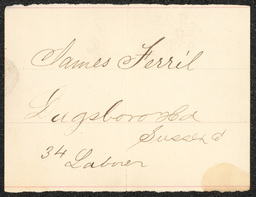 James Ferril
Lugsboro Hd
Sussex Cd
34
Labner